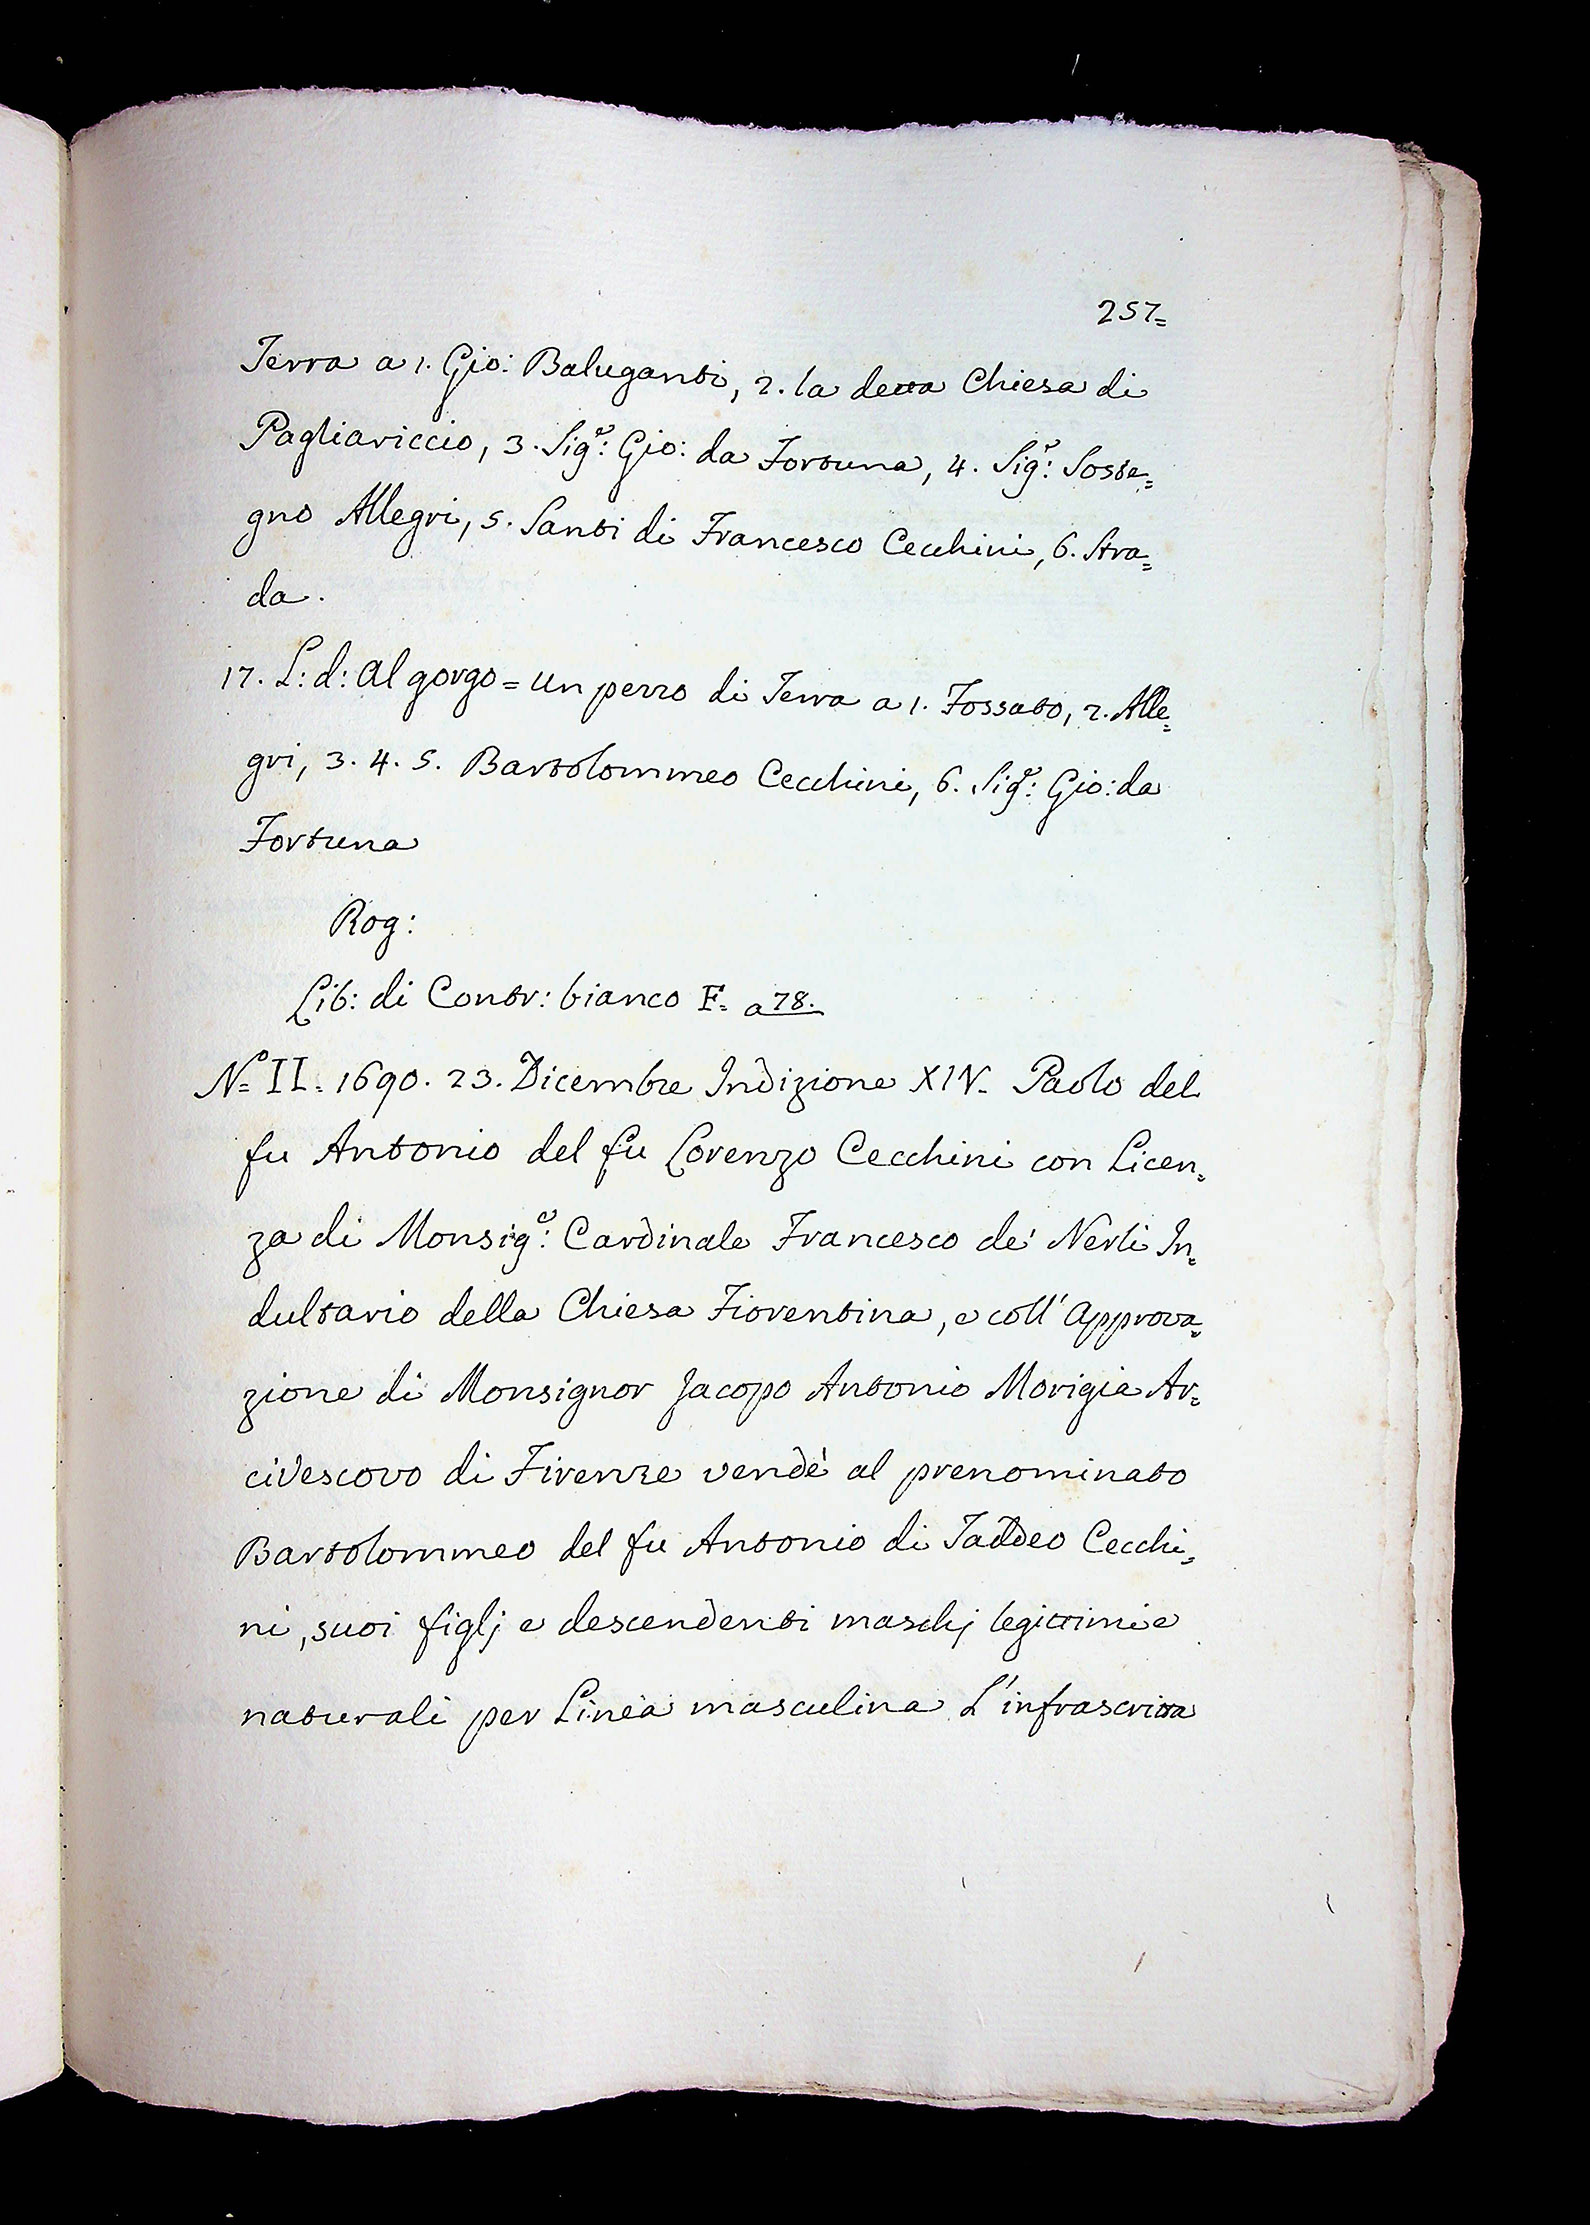 257=
Terra a 1. Gio: Baluganti, 2. la detta Chiesa di
Pagliariccio, 3. Sig.e: Gio: da Fortuna, 4. Sig.e: Soste=
gno Allegri, 5. Santi di Francesco Cecchini, 6. Stra=
da.
17. L: d: Al gorgo = un pezzo di Terra a 1. Fossato, 2. Alle=
gri, 3. 4. 5. Bartolommeo Cecchini, 6. Sig.e: Gio: da
Fortuna
Rog:
Lib: di Contr: bianco F. a 78.
N.o II. 1690. 23. Dicembre Indizione XIV. Paolo del
fu Antonio del fu Lorenzo Cecchini con Licen=
za di Monsig.e: Cardinale Francesco de' Nerli In=
dultario della Chiesa Fiorentina, e coll' Approva=
zione di Monsignor Jacopo Antonio Morigia Ar=
civescovo di Firenze vendè al prenominato
Bartolommeo del fu Antonio di Taddeo Cecchi=
ni, suoi figlj e descendenti maschj legittimi e
naturali per Linea masculina L'infrascritta